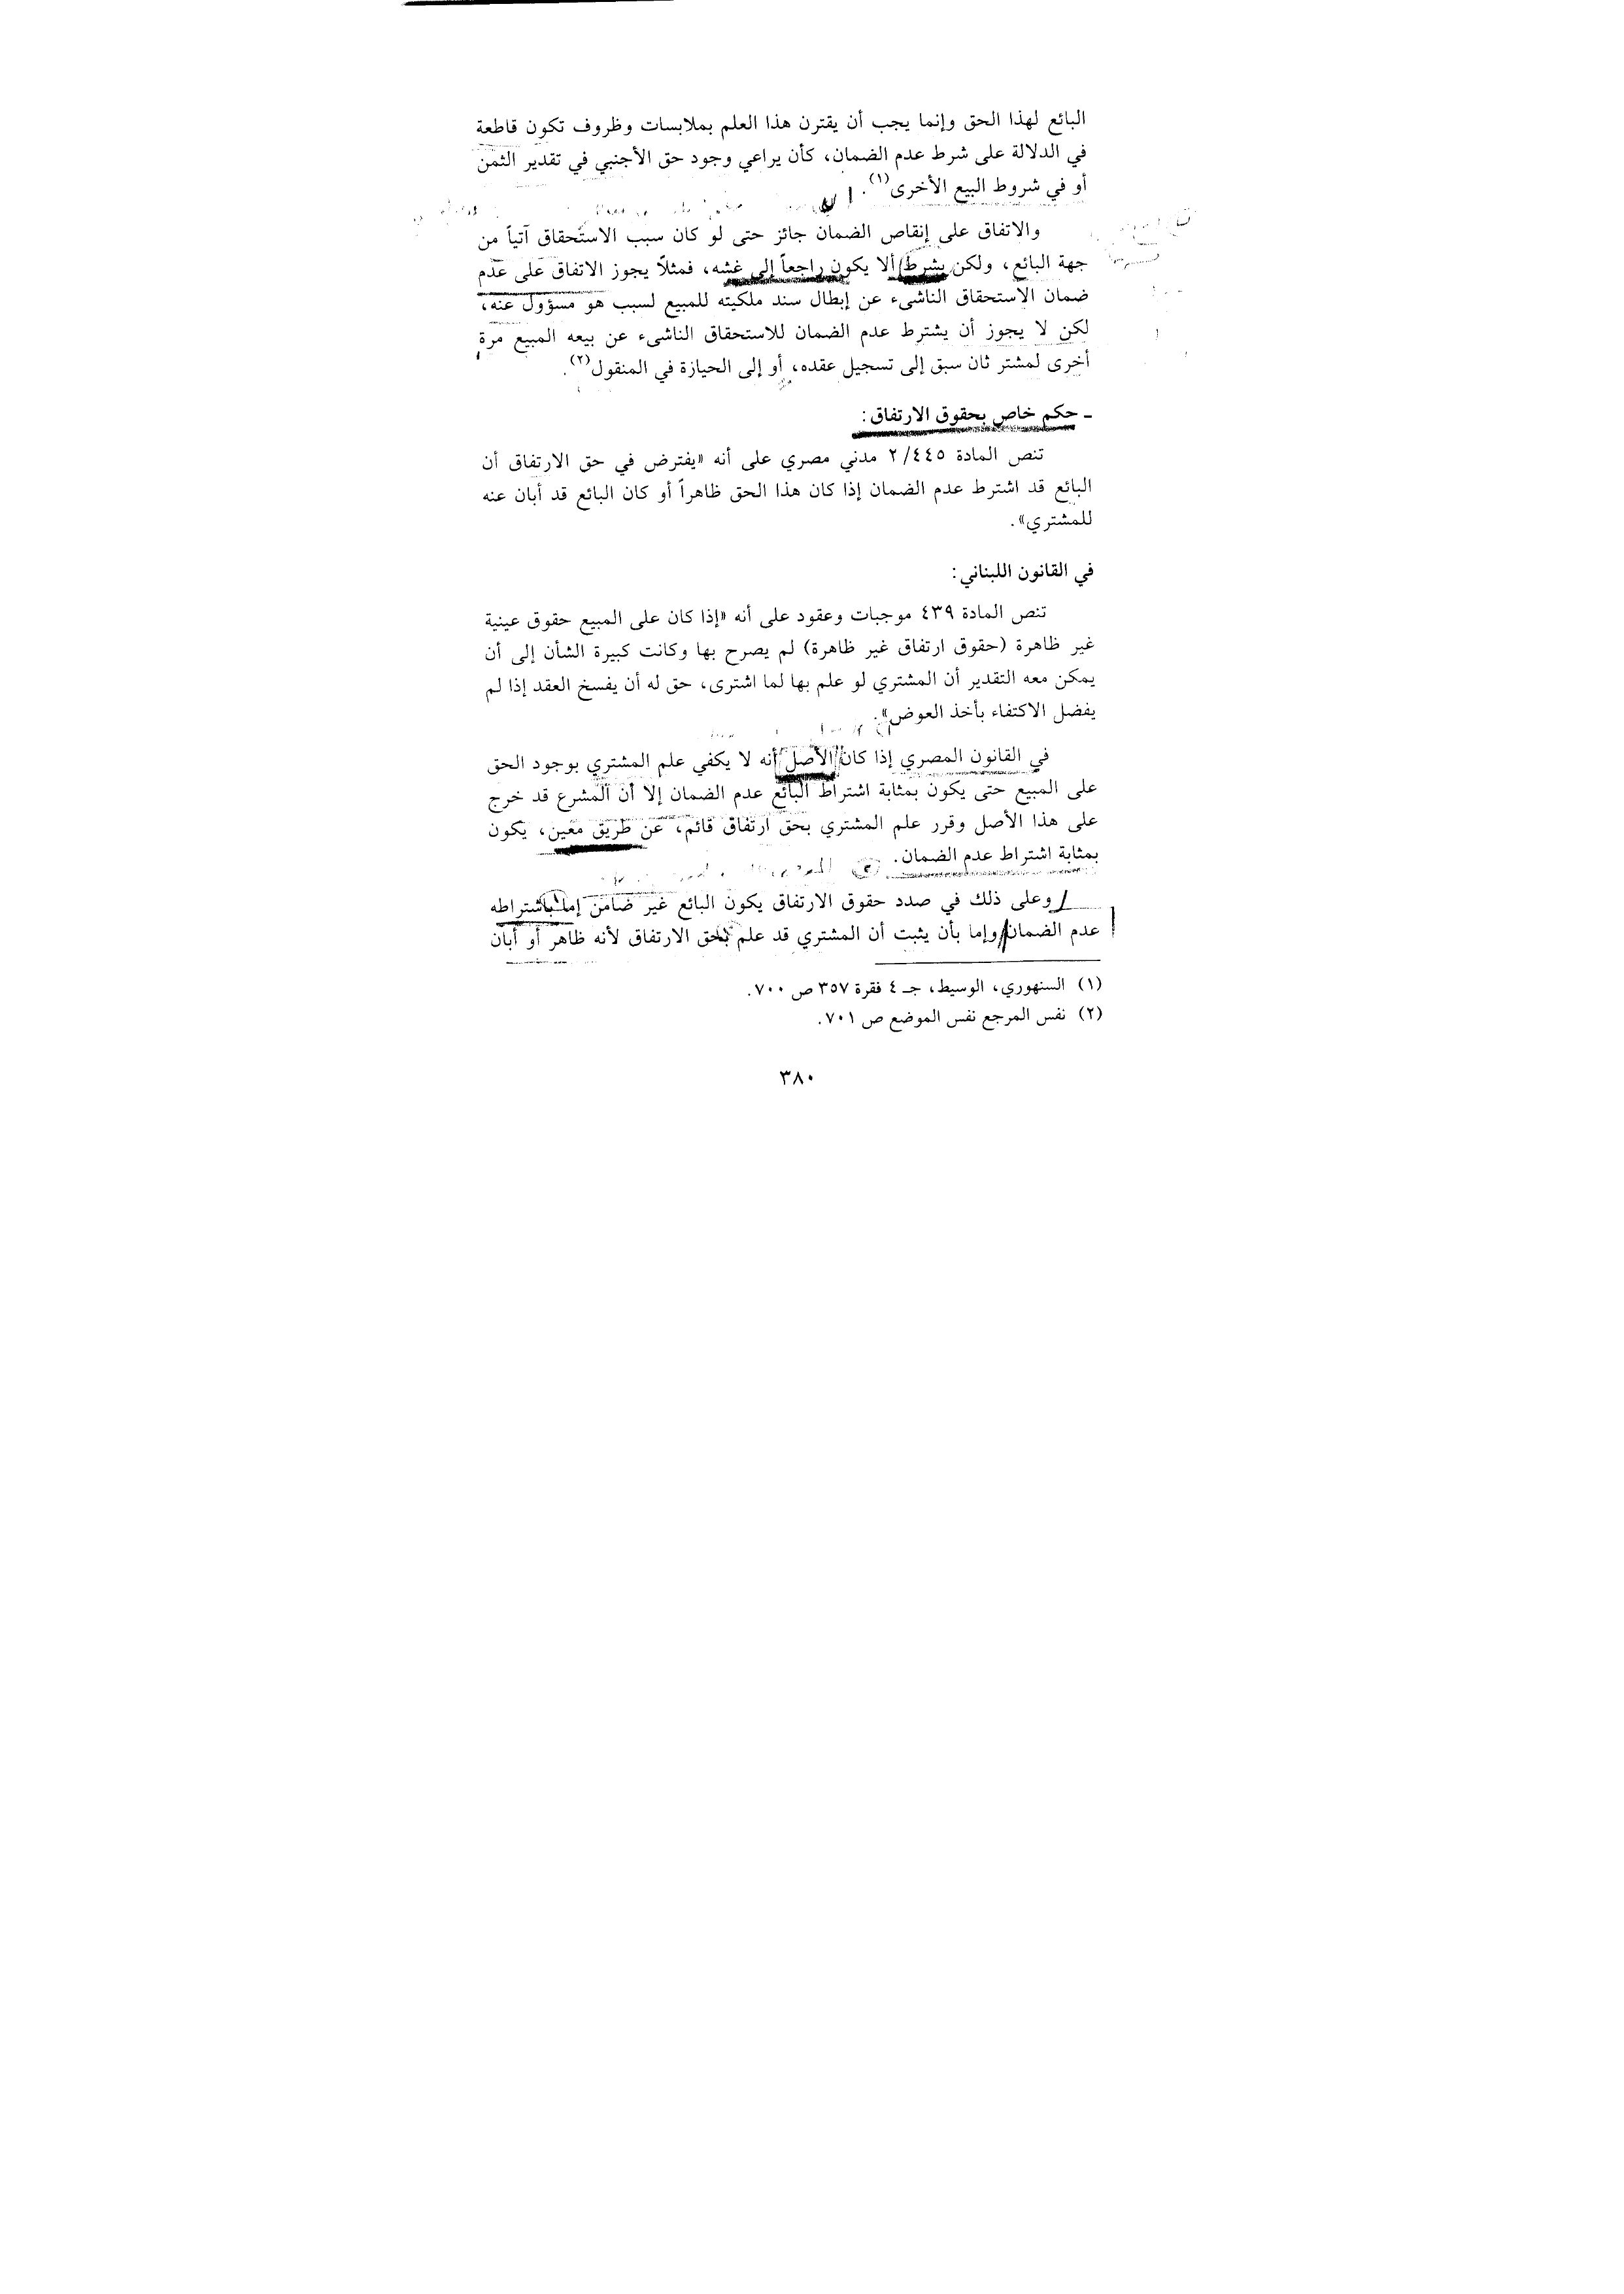 البائع لهذا الحق وإنما يجب أن يقترن هذا العلم بملابسات وظروف تكون قاطعة
في الدلالة على شرط عدم الضمان، كأن يراعي وجود حق الأجنبي في تقدير الثمن
أو في شروط البيع الأخرى(١).
والاتفاق على إنقاص الضمان جائز حتى لو كان سبب الاستحقاق آتياً من
جهة البائع، ولكن بشرط ألا يكون راجعاً إلى غشه، فمثلاً يجوز الاتفاق على عدم
ضمان الاستحقاق الناشىء عن إبطال سند ملكيته للمبيع لسبب هو مسؤول عنه،
لكن لا يجوز أن يشترط عدم الضمان للاستحقاق الناشىء عن بيعه المبيع مرة
أخرى لمشتر ثان سبق إلى تسجيل عقده، أو إلى الحيازة في المنقول(٢).
ـ حكم خاص بحقوق الارتفاق:
تنص المادة ٢/٤٤٥ مدني مصري على أنه «يفترض في حق الارتفاق أن
البائع قد اشترط عدم الضمان إذا كان هذا الحق ظاهراً أو كان البائع قد أبان عنه
للمشتري».
في القانون اللبناني:
تنص المادة ٤٣٩ موجبات وعقود على أنه «إذا كان على المبيع حقوق عينية
غير ظاهرة (حقوق ارتفاق غير ظاهرة) لم يصرح بها وكانت كبيرة الشأن إلى أن
يمكن معه التقدير أن المشتري لو علم بها لما اشترى، حق له أن يفسخ العقد إذا لم
يفضل الاكتفاء بأخذ العوض».
في القانون المصري إذا كان الأصل أنه لا يكفي علم المشتري بوجود الحق
على المبيع حتى يكون بمثابة اشتراط البائع عدم الضمان إلا أن المشرع قد خرج
على هذا الأصل وقرر علم المشتري بحق ارتفاق قائم، عن طريق معين، يكون
بمثابة اشتراط عدم الضمان.
وعلى ذلك في صدد حقوق الارتفاق يكون البائع غير ضامن إما باشتراطه
عدم الضمان وإما بأن يثبت أن المشتري قد علم بحق الارتفاق لأنه ظاهر أو أبان
(١) السنهوري، الوسيط، جـ ٤ فقرة ٣٥٧ ص ٧٠٠.
(٢) نفس المرجع نفس الموضع ص ٧٠١.
٣٨٠